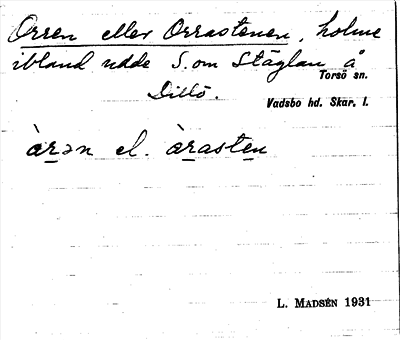 Orren eller Orrastenen, holme
ibland udde S. om Stäglan å
Torsö sn.
Dillö.
Vadsbo hd. Skar. l.
àrən el. àrasten
L. MADSÉN 1931